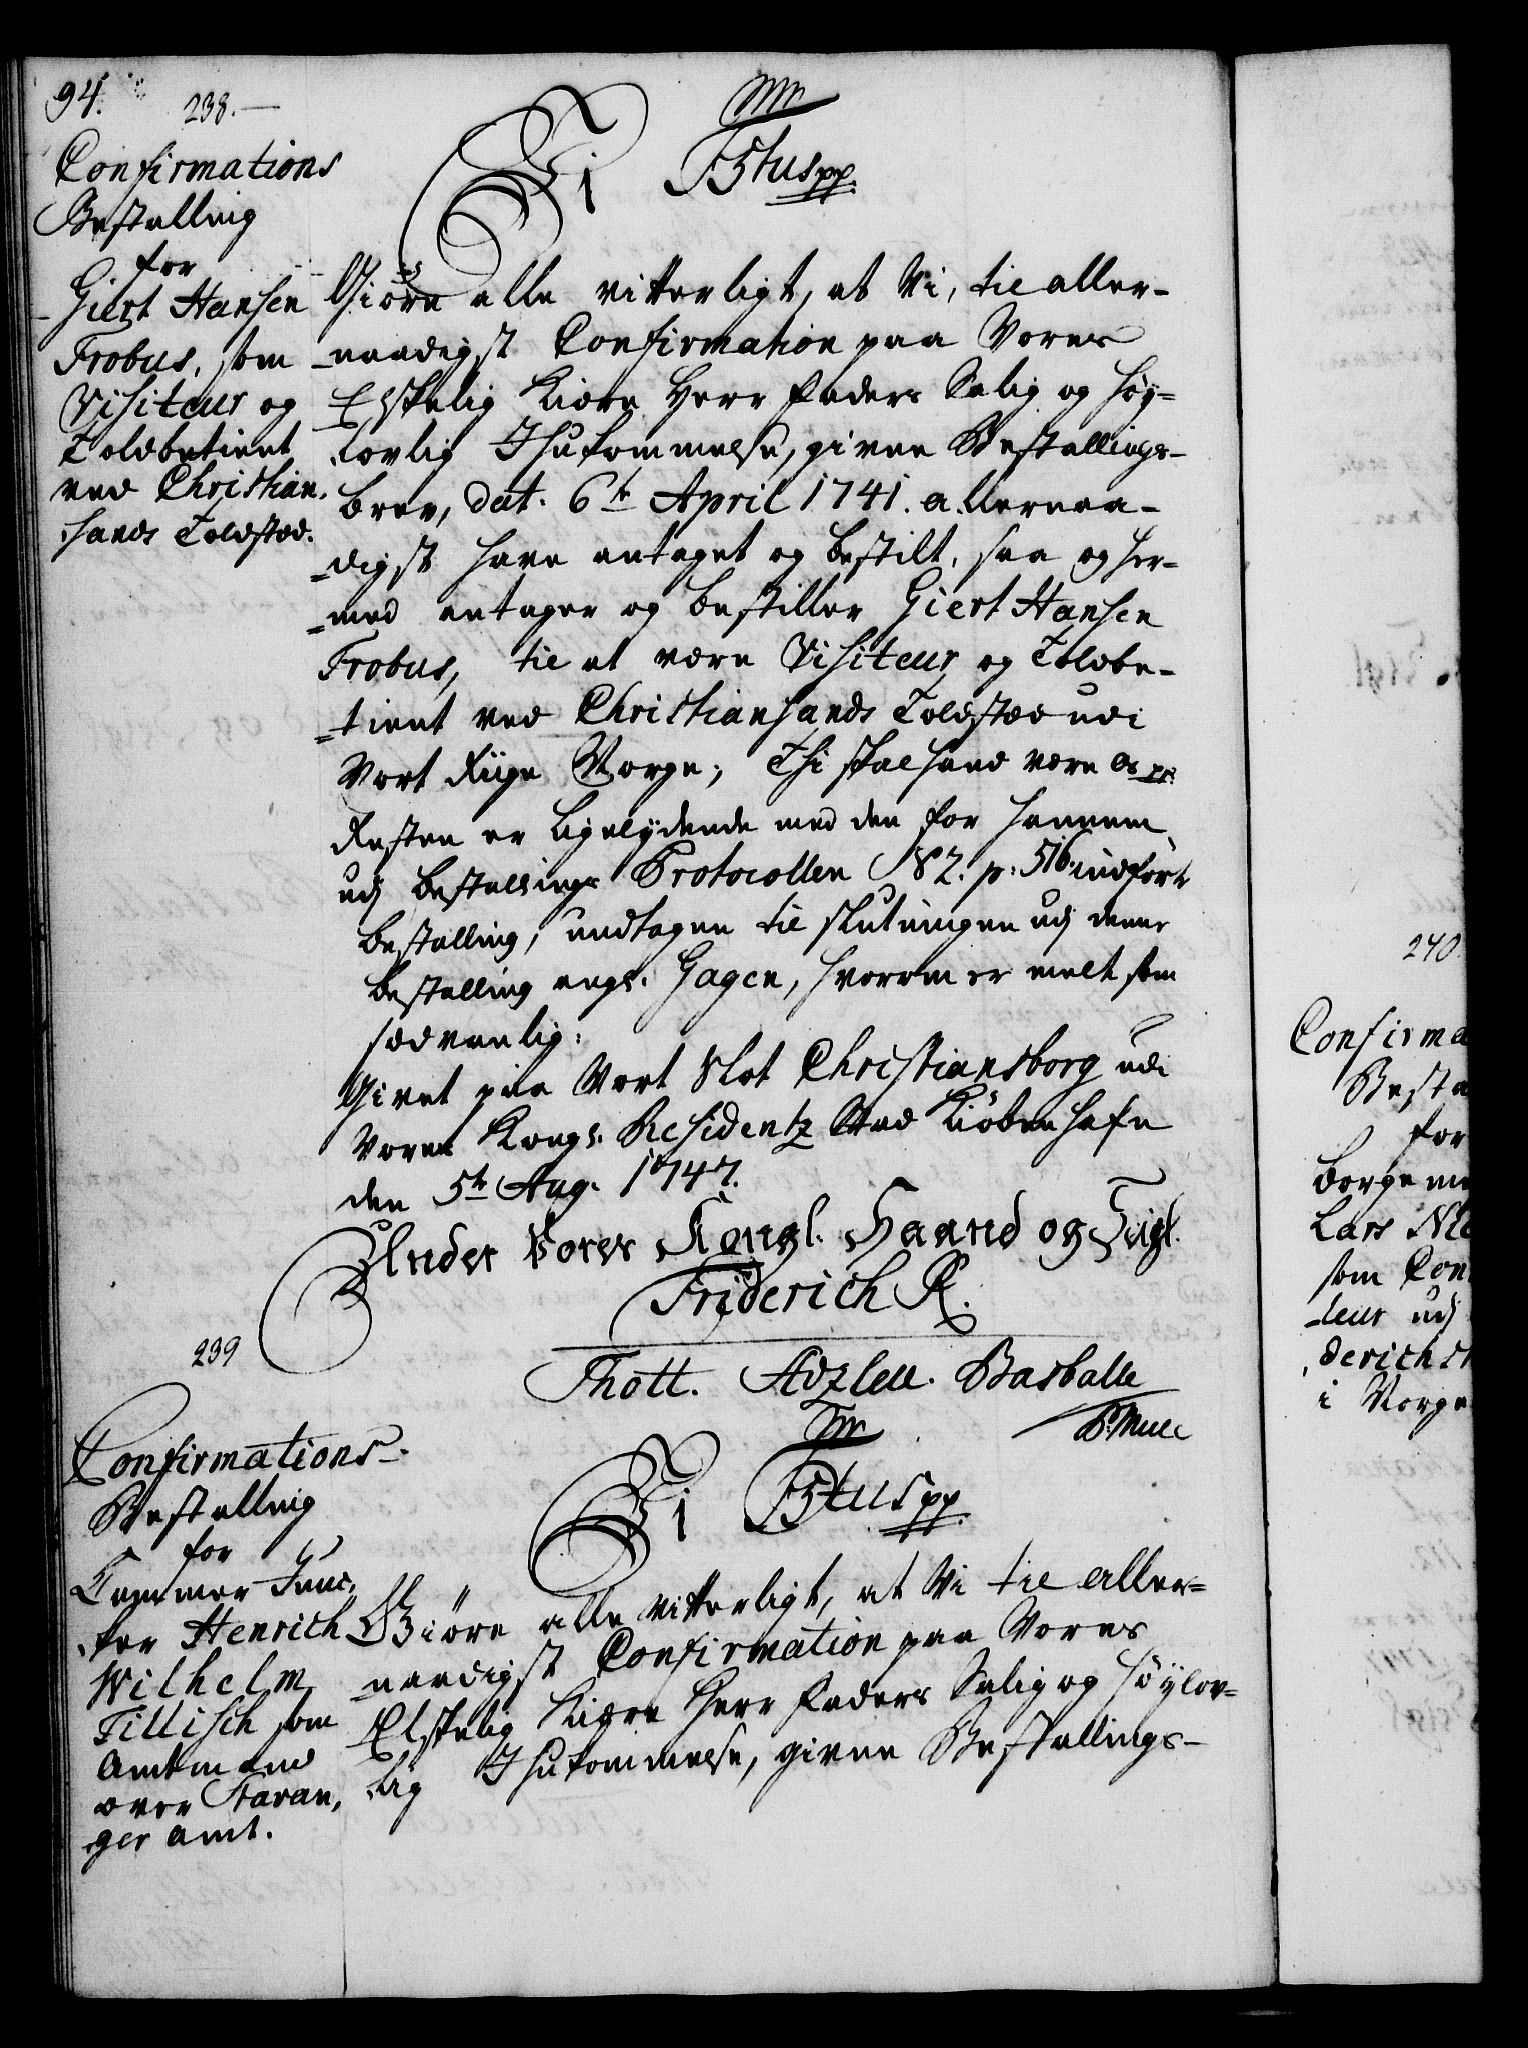 94.
238.
Confirmations
Bestalling
for
Giert Hansen
Frobus, som
Visiteur og
Toldbetient
ved Christian-
sands Toldsted.
Vi F5tus pp.
Giöre alle vitterligt, at Vi, til aller-
naadigst Confirmation paa Vores
Elskelig Kiære Herr Faders Salig og Høy-
lovlig Ihukommelse, given Bestallings-
brev, dat. 6te April 1741. allernaa-
digst have antaget og bestilt, saa og her-
med antager og bestiller Giert Hansen
Frobus, til at være Visiteur og Toldbe-
tient ved Christiansands Toldsted udi
Vort Riige Norge; Thi skal hand være Os pp.
Resten er ligelydende med den for hannem
udj Bestallings Protocollen N 2. p: 516. indført
Bestalling, undtagen til slutningen udj denne
Bestalling ang: Gagen, hvorom er melt som
sædvanlig:
Givet paa Vort Slot Christiansborg udi
Vores Kongl. Residentz Stad Kiöbenhafn
den 5te Aug. 1747.
Under Vores Kongl. Haand og Signl.
Friderich R.
Thott. Adzleu. Bartballe
P. Mull
239
Confirmations-
Bestalling
for
Cammer Junc-
ker Henrich
Wilhelm
Tillisch som
Amtmand
over Stavan-
ger Amt.
Vi F5tus pp.
Giöre alle vitterligt, at Vi til aller-
naadigst Confirmation paa Vores
Elskelig Kiære Herr Faders Salig og Høylov-
lig Ihukommelse, given Bestallings-
240.
Confirma
Besta
for
Borgeme
Lars Nie
som Con
leur udj
derichst
i Norge